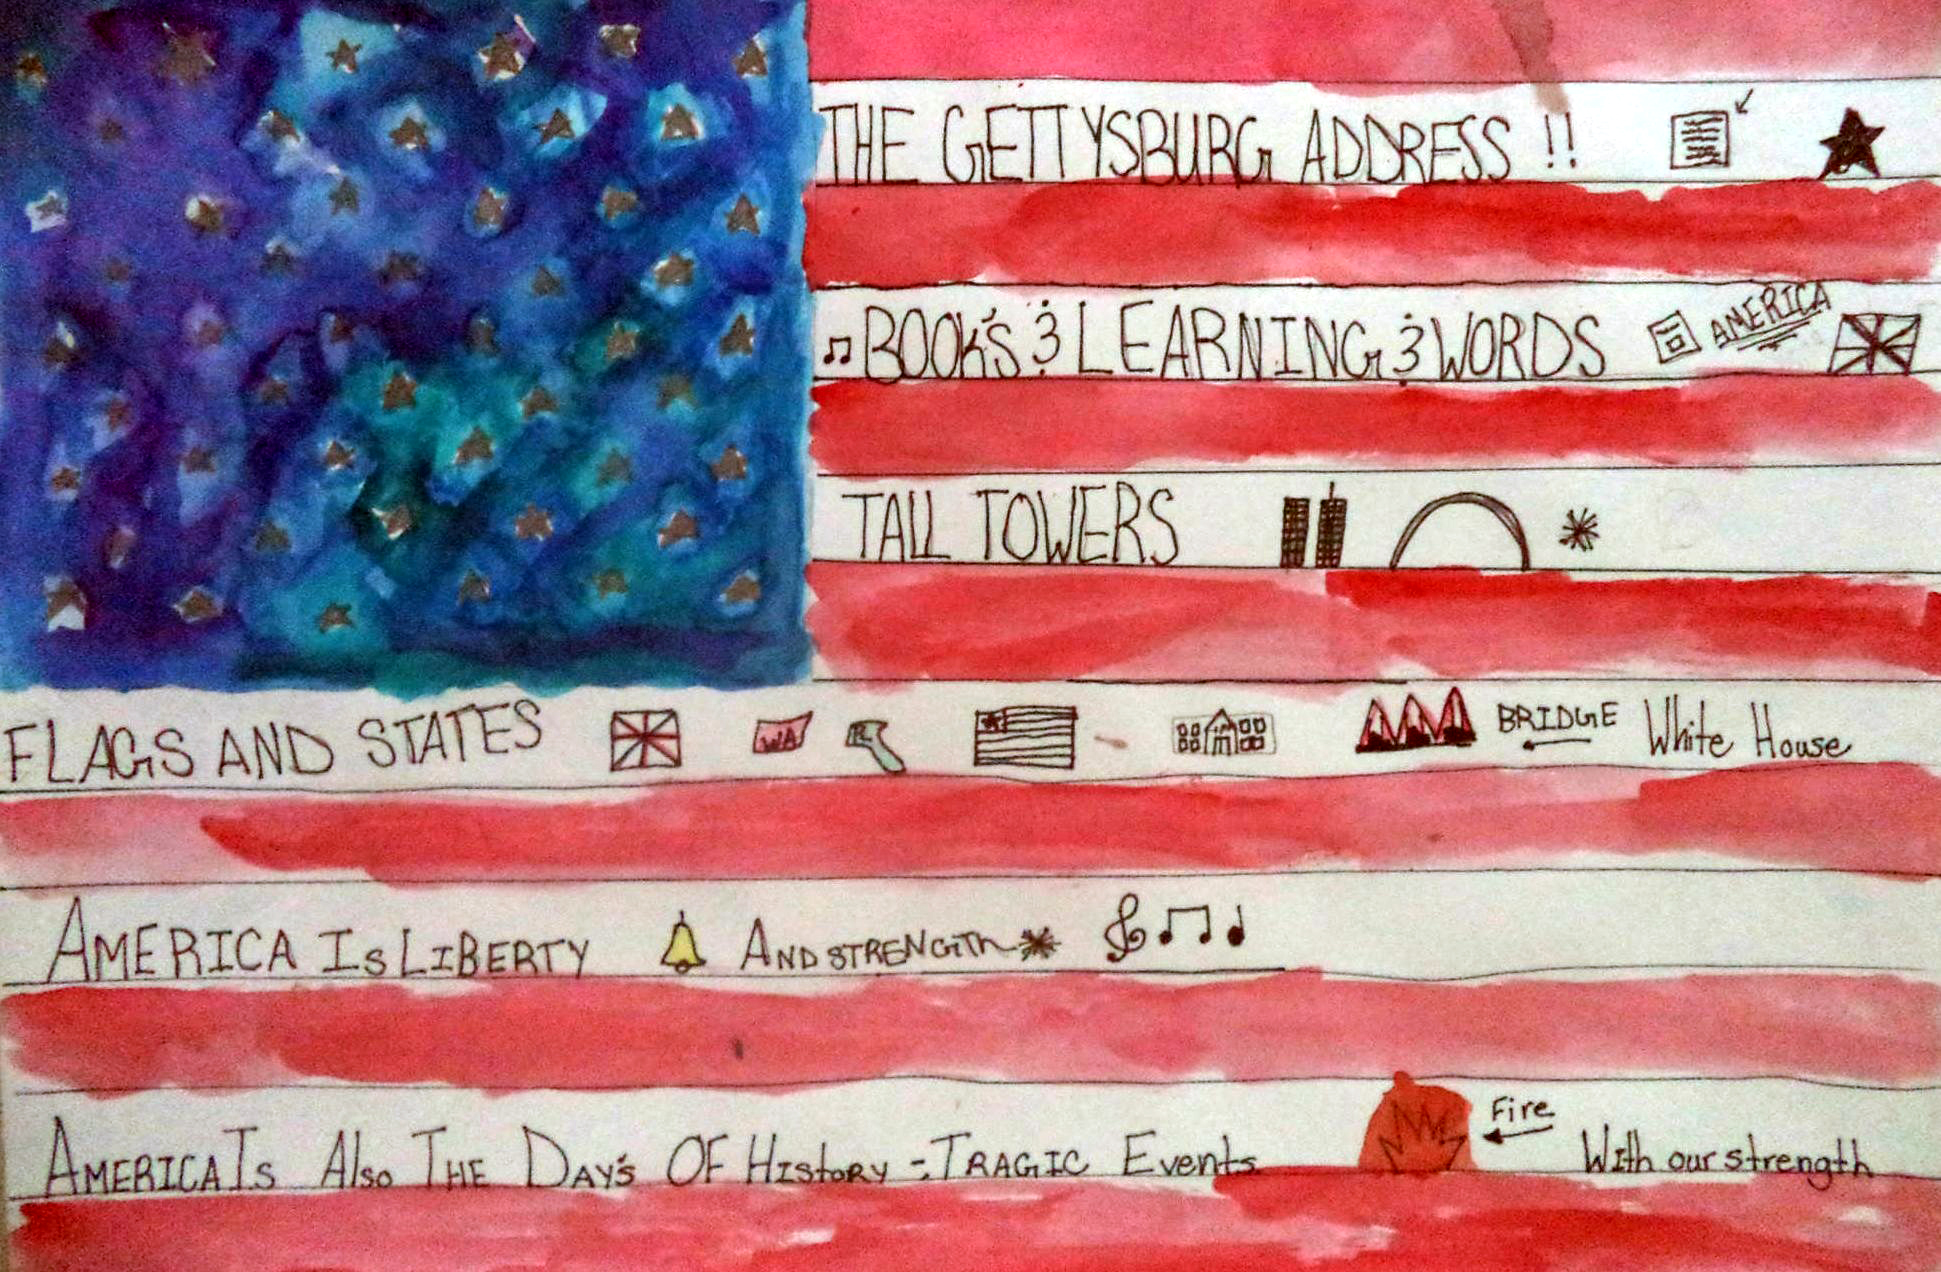 THE GETTYSBURG ADDRESS !!
BOOK'S & LEARNING & WORDS AMERICA
TALL TOWERS
FLAGS AND STATES WA BRIDGE White House
AMERICA Is LIBERTY AND STRENGTH
AMERICA Is Also THE DAY'S OF HIStoRY - TRAGIC Events Fire With our strength